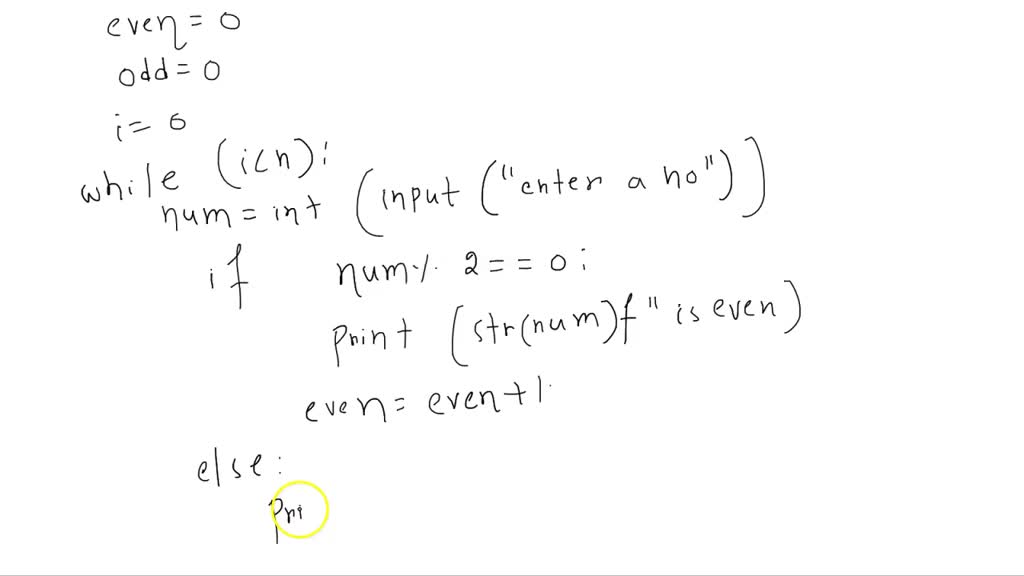 even = 0
odd = 0
i = 0
while (i<n):
num = int (input ("enter a no"))
if num % 2 == 0 :
print (str(num)f" is even)
even = even + 1
else :
pri